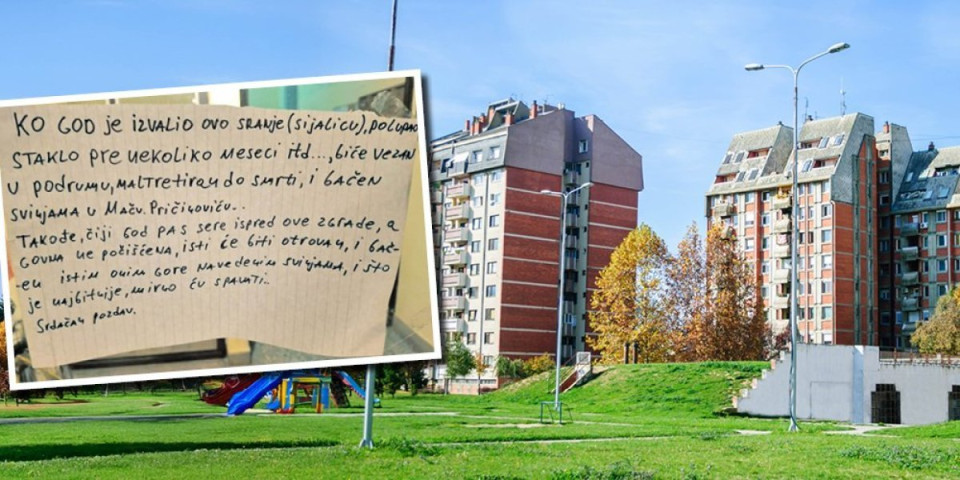 KO GOD je IZVALIO OVO SRANJE (SIJALICU), POLUPAO
STAKLO PRE NEKOLIKO MESECI ITD..., biće VEZAN
U PODRUMU, MALTRETIRAN DO SMRTI, I BAČEN
SVINJAMA U MAČV. PRIČINOVIĆU..
TAKOĐE, ČIJI GOD PAS SERE ISPRED OVE ZGRADE, A
GOVNA NE POČIŠĆENA, ISTI ĆE BITI OTROVAN, I BAČ-
EN ISTIM ONIM GORE NAVEDENIM SVINJAMA, I ŠTO
je NAJBITNIJE, MIRNO ĆU SPAVATI..
SRDAČAN POZDRAV.